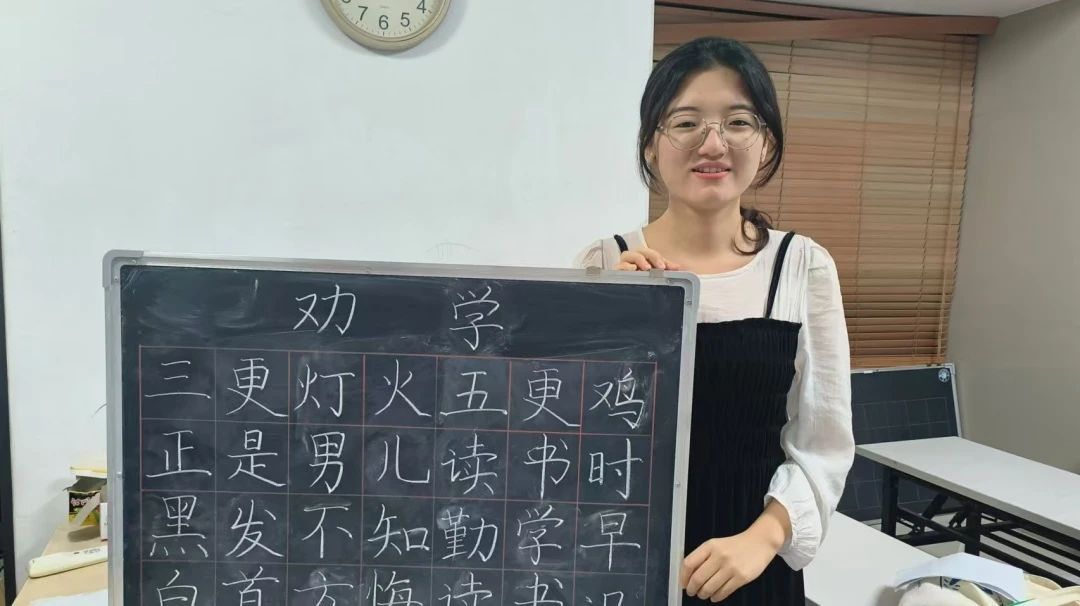 7 6 5 4
劝学
三更灯火五更鸡
正是男儿读书时
黑发不知勤学早
白首方悔读书